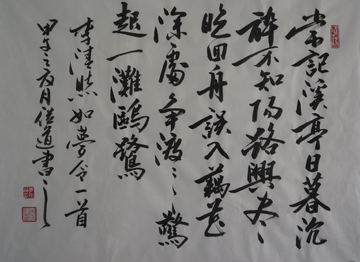 常記溪亭日暮沉
醉不知歸路興尽
晚回舟誤入藕花
深處争渡〻〻驚
起一灘鷗鷺
李清照如夢令一首
甲午之夏月道書